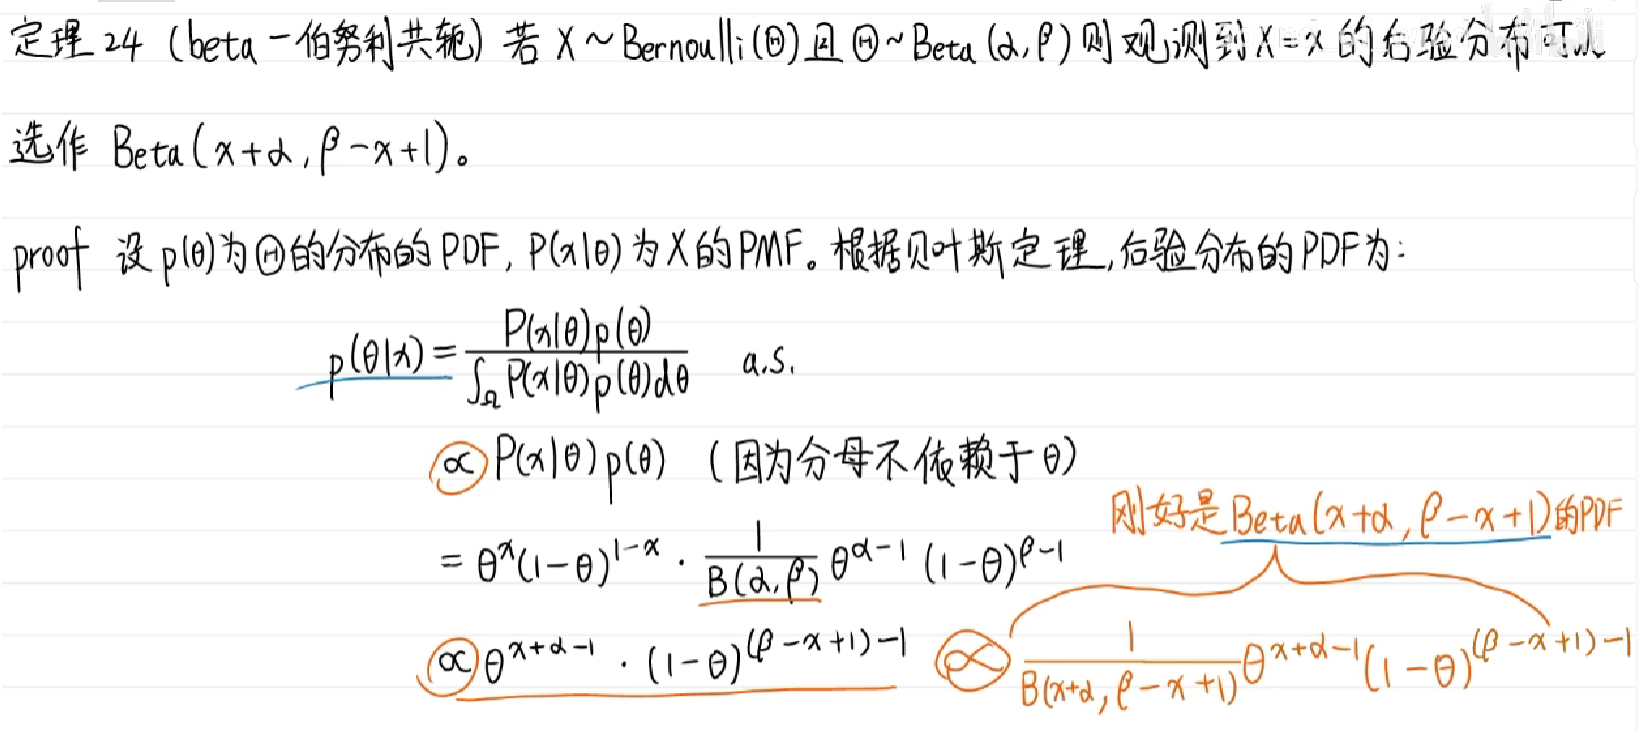 定理 24 (beta－伯努利共轭) 若 X ~ Bernoulli(Θ) 且 Θ ~ Beta (α, β) 则观测到 X = x 的后验分布可以
选作 Beta(x+α, β-x+1)。
proof 设 p(θ)为Θ的分布的PDF, P(x|θ)为X的PMF。根据贝叶斯定理,后验分布的PDF为:
p(θ|x) = P(x|θ)p(θ) / ∫_Ω P(x|θ)p(θ)dθ a.s.
∝ P(x|θ)p(θ) (因为分母不依赖于θ)
刚好是Beta(x+α, β-x+1)的PDF
= θ^x(1-θ)^{1-x} · 1/B(α,β) θ^{α-1} (1-θ)^{β-1}
∝ θ^{x+α-1} · (1-θ)^{(β-x+1)-1} ∝ 1/B(x+α, β-x+1) θ^{x+α-1}(1-θ)^{(β-x+1)-1}